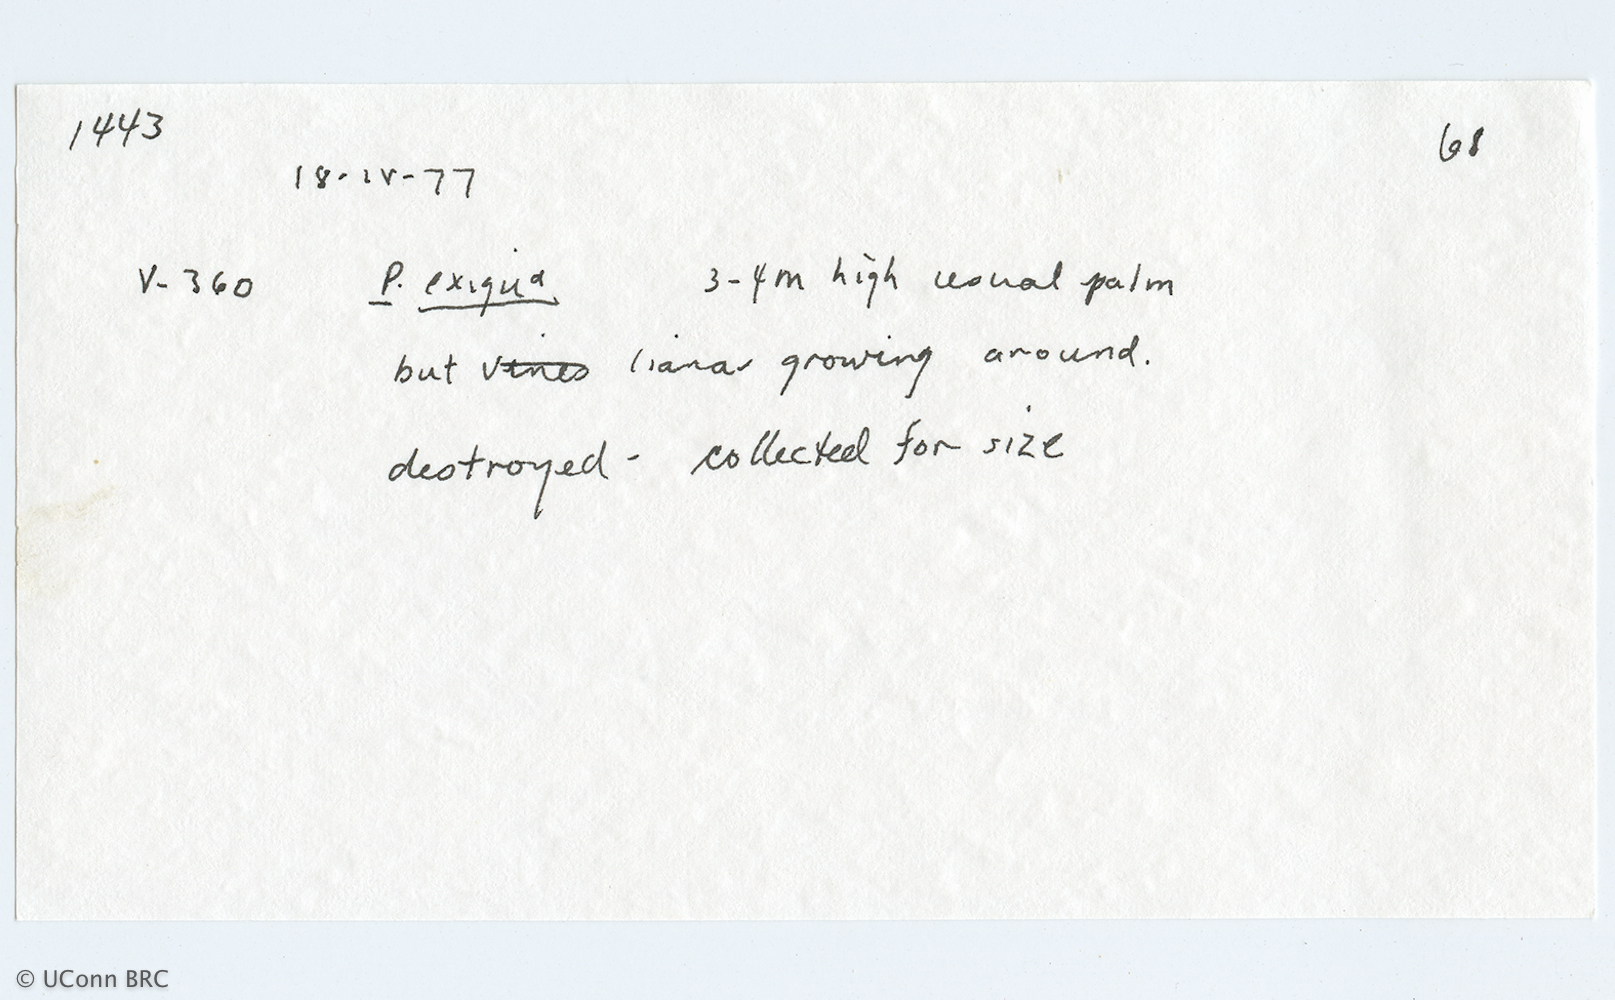 1443
68
18-IV-77
V-360 P. exigua 3-4m high usual palm
but vines lianas growing around.
destroyed - collected for size
© UConn BRC